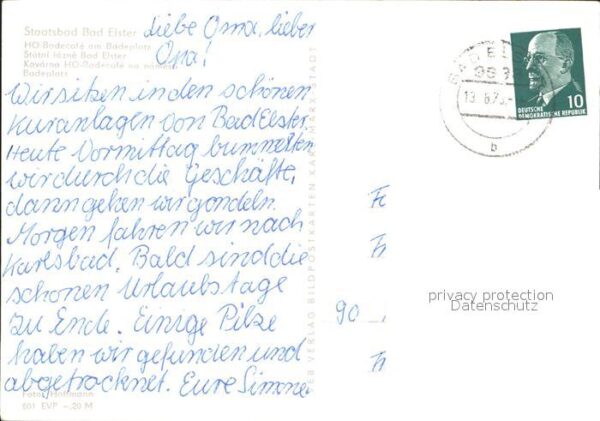 Staatsbad Bad Elster
HO-Badecafé am Badeplatz
Státní lázně Bad Elster
Kavárna HO-Badecafé na náměstí
Badeplatz
Liebe Oma, lieber
Opa!
Wir sitzen in den schönen
Kuranlagen von Bad Elster.
Heute Vormittag bummelten
wir durch die Geschäfte,
dann gehen wir gondeln.
Morgen fahren wir nach
Karlsbad. Bald sind die
schönen Urlaubstage
zu Ende. Einige Pilze
haben wir gefunden und
abgetrocknet. Eure Simone
Foto: Hoffmann
601 EVP -.20 M
VEB VERLAG BILDPOSTKARTEN KARL-MARX-STADT
BAD ELS
993
b
10
DEUTSCHE
DEMOKRATISCHE REPUBLIK
Fr
90
privacy protection
Datenschutz